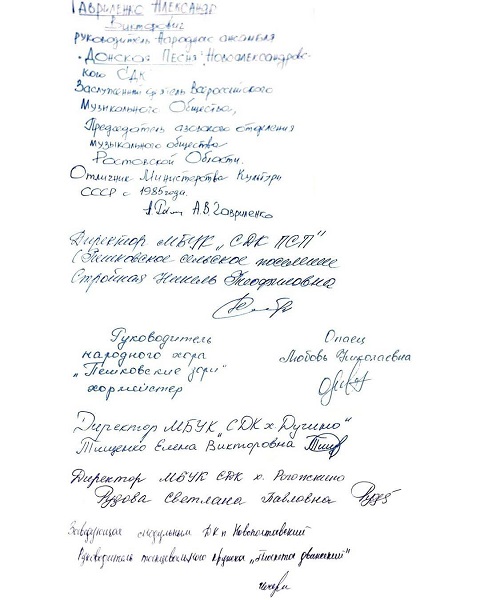 Гавриленко Александр
Викторович
руководитель Народного ансамбля
"Донская Песня" Новоалександровс
кого СДК
Заслуженный деятель Всероссийского
Музыкального Общества,
Председатель азовского отделения
музыкального общества
Ростовской Области.
Отличник Министерства Культуры
СССР с 1985 года.
А.В. Гавриленко
Директор МБУК "СДК ПСП"
(Пешковское сельское поселение
Стройная Нинель Теофиловна
Руководитель
народного хора
"Пешковские зори"
хормейстер
Опаец
Любовь Николаевна
Директор МБУК "СДК х Дугино"
Тищенко Елена Викторовна
Директор МБУК СДК х. Рогожкино
Рудова Светлана Павловна
Заведующая модульным ДК п Новополтавский
Руководитель танцевального кружка